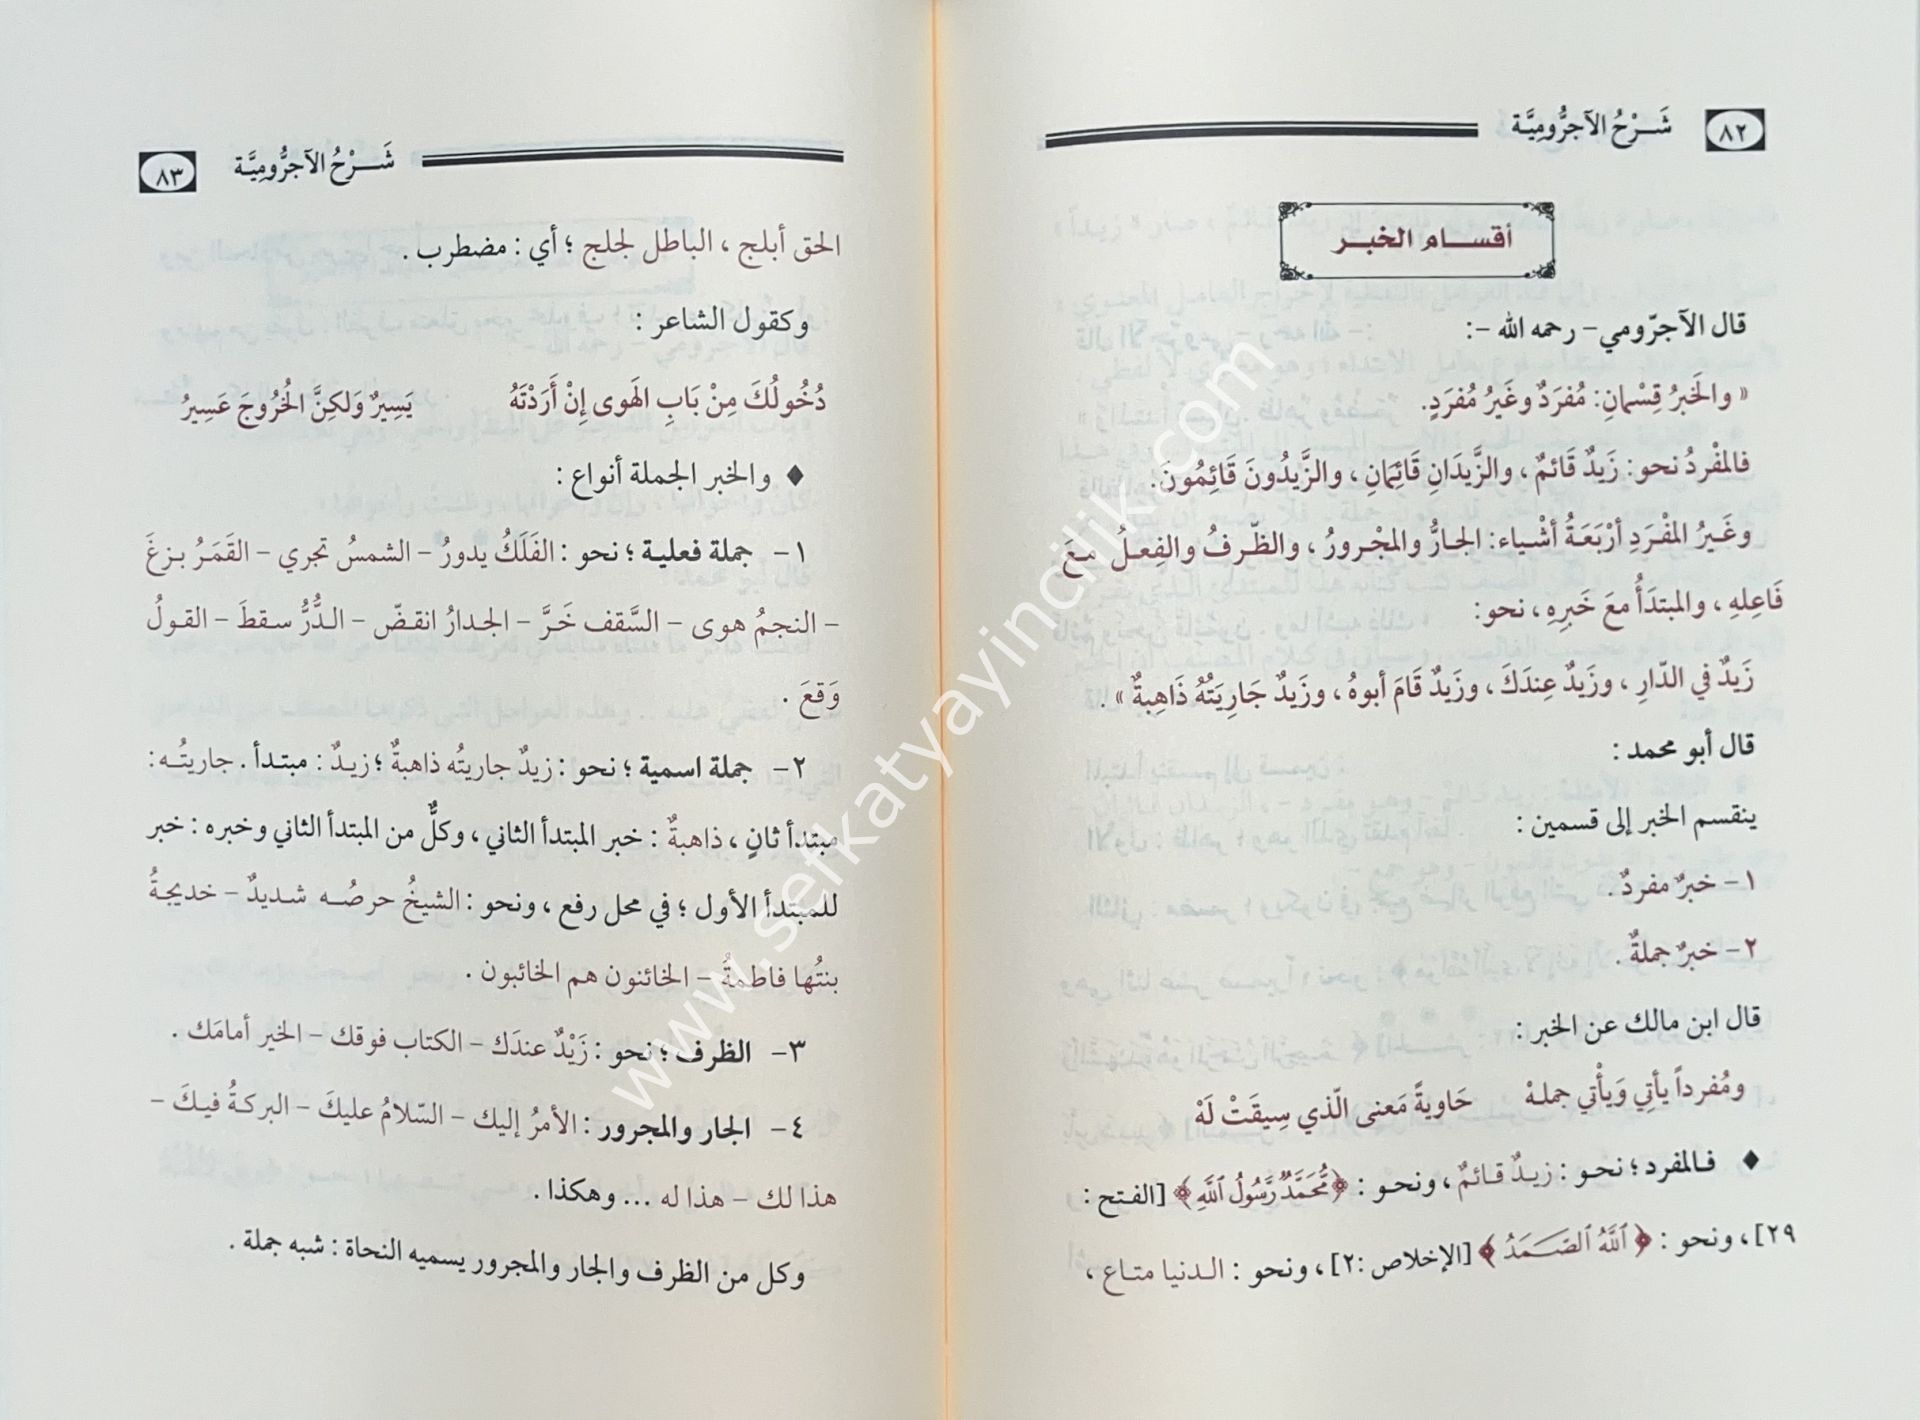 ٨٢ شَـرْحُ الآجرُّومِيَّة
أقسـام الخبـر
قال الآجرّومي - رحمه الله -:
« والخَبرُ قِسْمانِ: مُفرَدٌ وغَيرُ مُفرَدٍ.
فالمفْردُ نحو: زَيدٌ قَائمٌ ، والزَّيدَانِ قَائِمَانِ ، والزَّيدُونَ قَائِمُونَ.
وغَيرُ المفْرَدِ أرْبَعَةُ أشْياء: الجارُّ والمجْرورُ ، والظّرفُ والفِعلُ معَ
فَاعِلهِ ، والمبتدَأُ معَ خَبرِهِ ، نحو:
زَيدٌ في الدّارِ ، وزَيدٌ عِندَكَ ، وزَيدٌ قَامَ أبوهُ ، وزَيدٌ جَارِيَتُهُ ذَاهِبةٌ » .
قال أبو محمد :
ينقسم الخبر إلى قسمين :
١- خبرٌ مفردٌ .
٢- خبرٌ جملةٌ .
قال ابن مالك عن الخبر :
ومُفرداً يأتِي وَيأْتي جملهْ حَاويةً مَعنى الّذي سِيقَتْ لَهْ
♦ فـالمفرد ؛ نحـو : زيـدٌ قـائمٌ ، ونحـو : ﴿مُّحَمَّدٌ رَّسُولُ ٱللَّهِ﴾ [الفـتح :
٢٩] ، ونحو : ﴿ ٱللَّهُ ٱلصَّـمَدُ ﴾ [الإخلاص :٢] ، ونحو : الـدنيا متـاع ،
شَـرْحُ الآجرُّومِيَّة ٨٣
الحق أبلج ، الباطل لجلج ؛ أي : مضطرب .
وكقول الشاعر :
دُخُولُكَ مِنْ بَابِ الهَوى إنْ أَرَدْتَهُ يَسِيرٌ وَلكِنَّ الخُروجَ عَسِيرُ
♦ والخبر الجملة أنواع :
١- جملة فعلية ؛ نحو : الفَلَكُ يدورُ - الشمسُ تجري - القَمَرُ بـزغَ
- النجمُ هوى - السَّقف خَرَّ - الجـدارُ انقـضّ - الـدُّرُّ سـقطَ - القـولُ
وَقعَ .
٢- جملة اسمية ؛ نحو : زيدٌ جاريتُه ذاهبةٌ ؛ زيـدٌ : مبتـدأ . جاريتُـه :
مبتدأ ثانٍ ، ذاهبةٌ : خبر المبتدأ الثاني ، وكلٌّ من المبتدأ الثاني وخبره : خبر
للمبتدأ الأول ؛ في محل رفع ، ونحو : الشيخُ حرصُـه شـديدٌ - خديجـةُ
بنتُها فاطمةُ - الخائنون هم الخائبون .
٣- الظرف ؛ نحو : زَيْدٌ عندَك - الكتاب فوقك - الخير أمامَك .
٤- الجار والمجرور : الأمرُ إليك - السّلامُ عليكَ - البركـةُ فيـكَ -
هذا لك - هذا له ... وهكذا .
وكل من الظرف والجار والمجرور يسميه النحاة : شبه جملة .
www.sefkatyayincilik.com